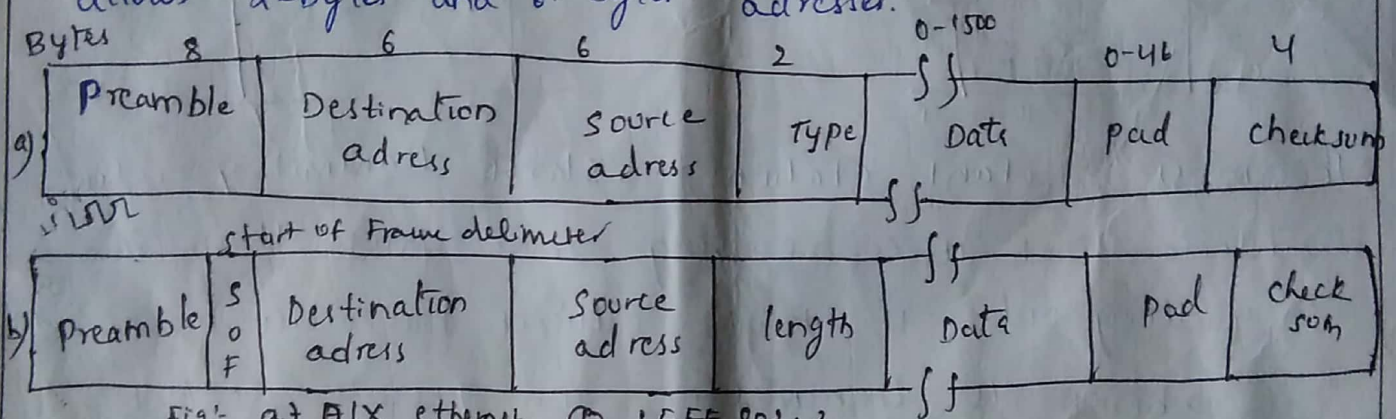 allows 2-bytes and 6-bytes adresses.
Bytes 8 6 6 2 0-1500 0-46 4
a) Preamble Destination adress Source adress Type Data Pad checksum
Start of Frame delimeter
b) Preamble SOF Destination adress Source adress length Data Pad check som